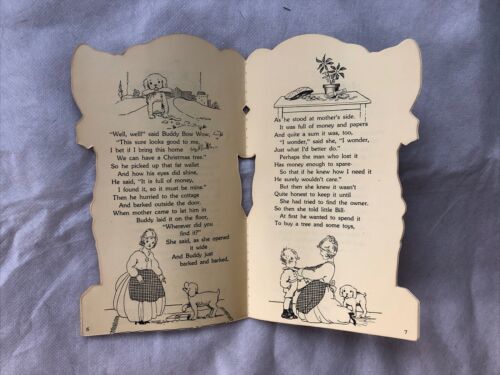 "Well, well!" said Buddy Bow Wow,
"This sure looks good to me,
I bet if I bring this home
We can have a Christmas tree."
So he picked up that fat wallet
And how his eyes did shine,
He said, "It is full of money,
I found it, so it must be mine."
Then he hurried to the cottage
And barked outside the door.
When mother came to let him in
Buddy laid it on the floor,
"Wherever did you
find it?"
She said, as she opened
it wide
And Buddy just
barked and barked,
6
As he stood at mother's side.
It was full of money and papers
And quite a sum it was, too,
"I wonder," said she, "I wonder,
Just what I'd better do."
Perhaps the man who lost it
Has money enough to spare-
So that if he knew how I need it
He surely wouldn't care."
But then she knew it wasn't
Quite honest to keep it until
She had tried to find the owner.
So then she told little Bill-
At first he wanted to spend it
To buy a tree and some toys,
7